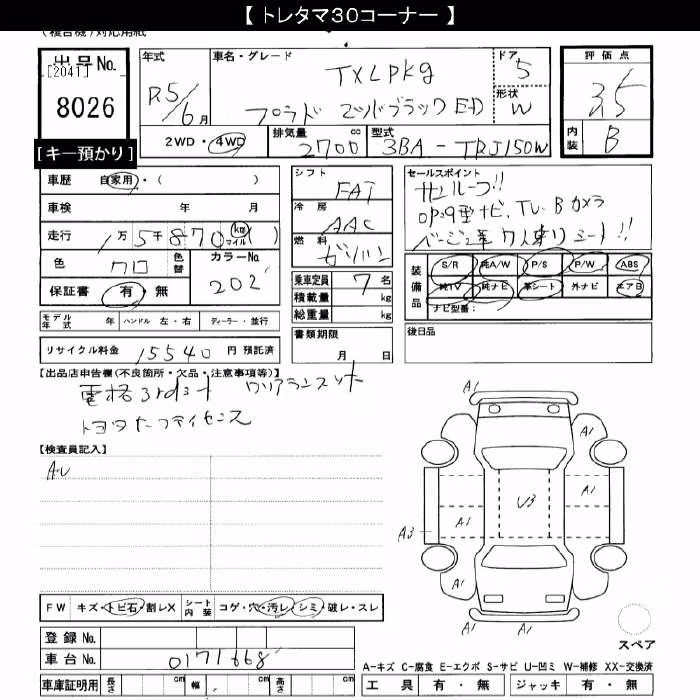 【 トレタマ30コーナー 】
(複合機)対応用紙
出品No.
[2041]
8026
【キー預かり】
年式
R5/6月
車名・グレード
TXLpkg
プラド マットブラックED
ドア
5
形状
W
評価点
3.5
内装
B
2WD・4WD
排気量
2700 cc
型式
3BA - TRJ150W
車歴 自家用・( )
車検 年 月
走行 1万5千870 km マイル
色 クロ
色替
カラーNo.
202
保証書 有・無
モデル年式 年 ハンドル 左・右 ディーラー・並行
リサイクル料金 15540 円 預託済
シフト
FAT
冷房
AAC
燃料
ガソリン
乗車定員 7 名
積載量 kg
総重量 kg
書類期限
月 日
セールスポイント
サンルーフ!!
OP.9型ナビ、TV、Bカメラ
ベージュ革 7人乗りシート!!
装備品
S/R 純A/W P/S P/W ABS
純TV 純ナビ 革シート 外ナビ エアB
ナビ型番:
後日品
【出品店申告欄(不良箇所・欠品・注意事項等)】
電格3rdシート クリアランスソナー
トヨタセーフティセンス
【検査員記入】
A・U
FW キズ・トビ石・割レX
シート内装 コゲ・穴・汚レ・シミ・破レ・スレ
登録 No.
車台 No. 0171668
車庫証明用 長さ cm 幅 cm 高さ cm
A1
A1
A1
U3
A1
A3
A1
A1
A1
スペア
A-キズ C-腐食 E-エクボ S-サビ U-凹ミ W-補修 XX-交換済
工具 有・無 ジャッキ 有・無